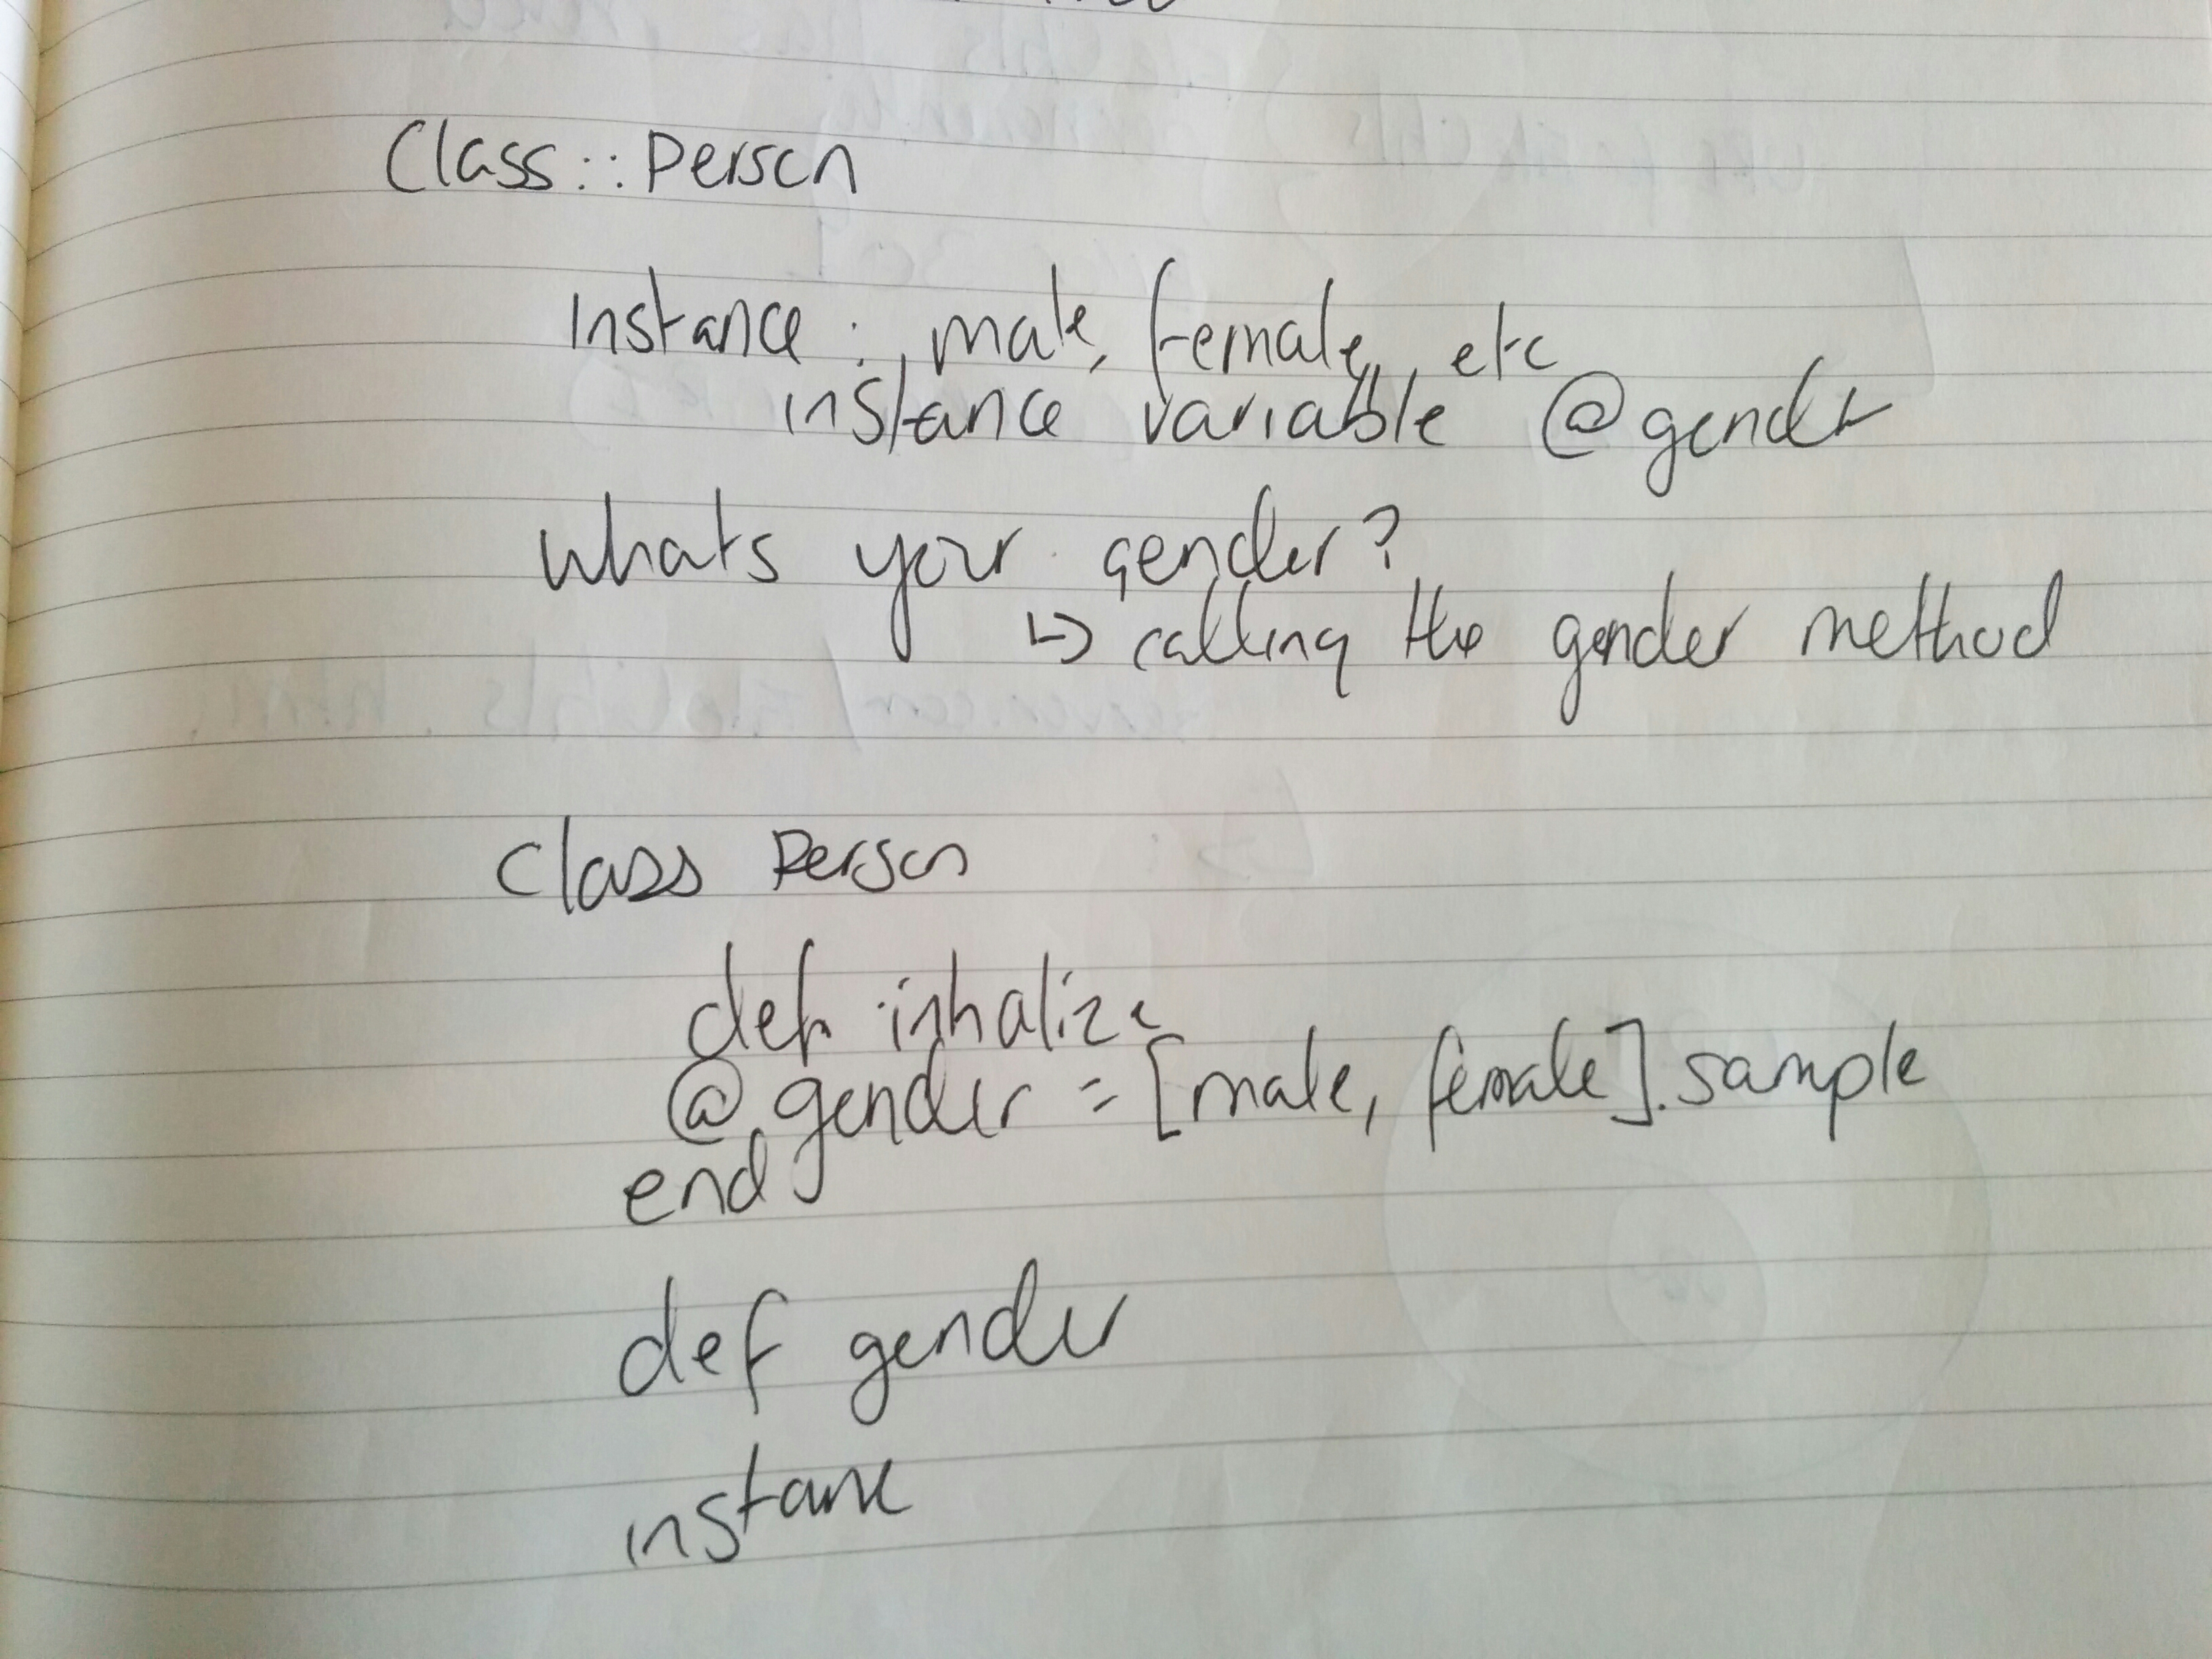 Class :: Person
Instance : male, female, etc
instance variable @gender
whats your gender?
↳ calling the gender method
class Person
def initialize
@gender = [male, female].sample
end
def gender
instance